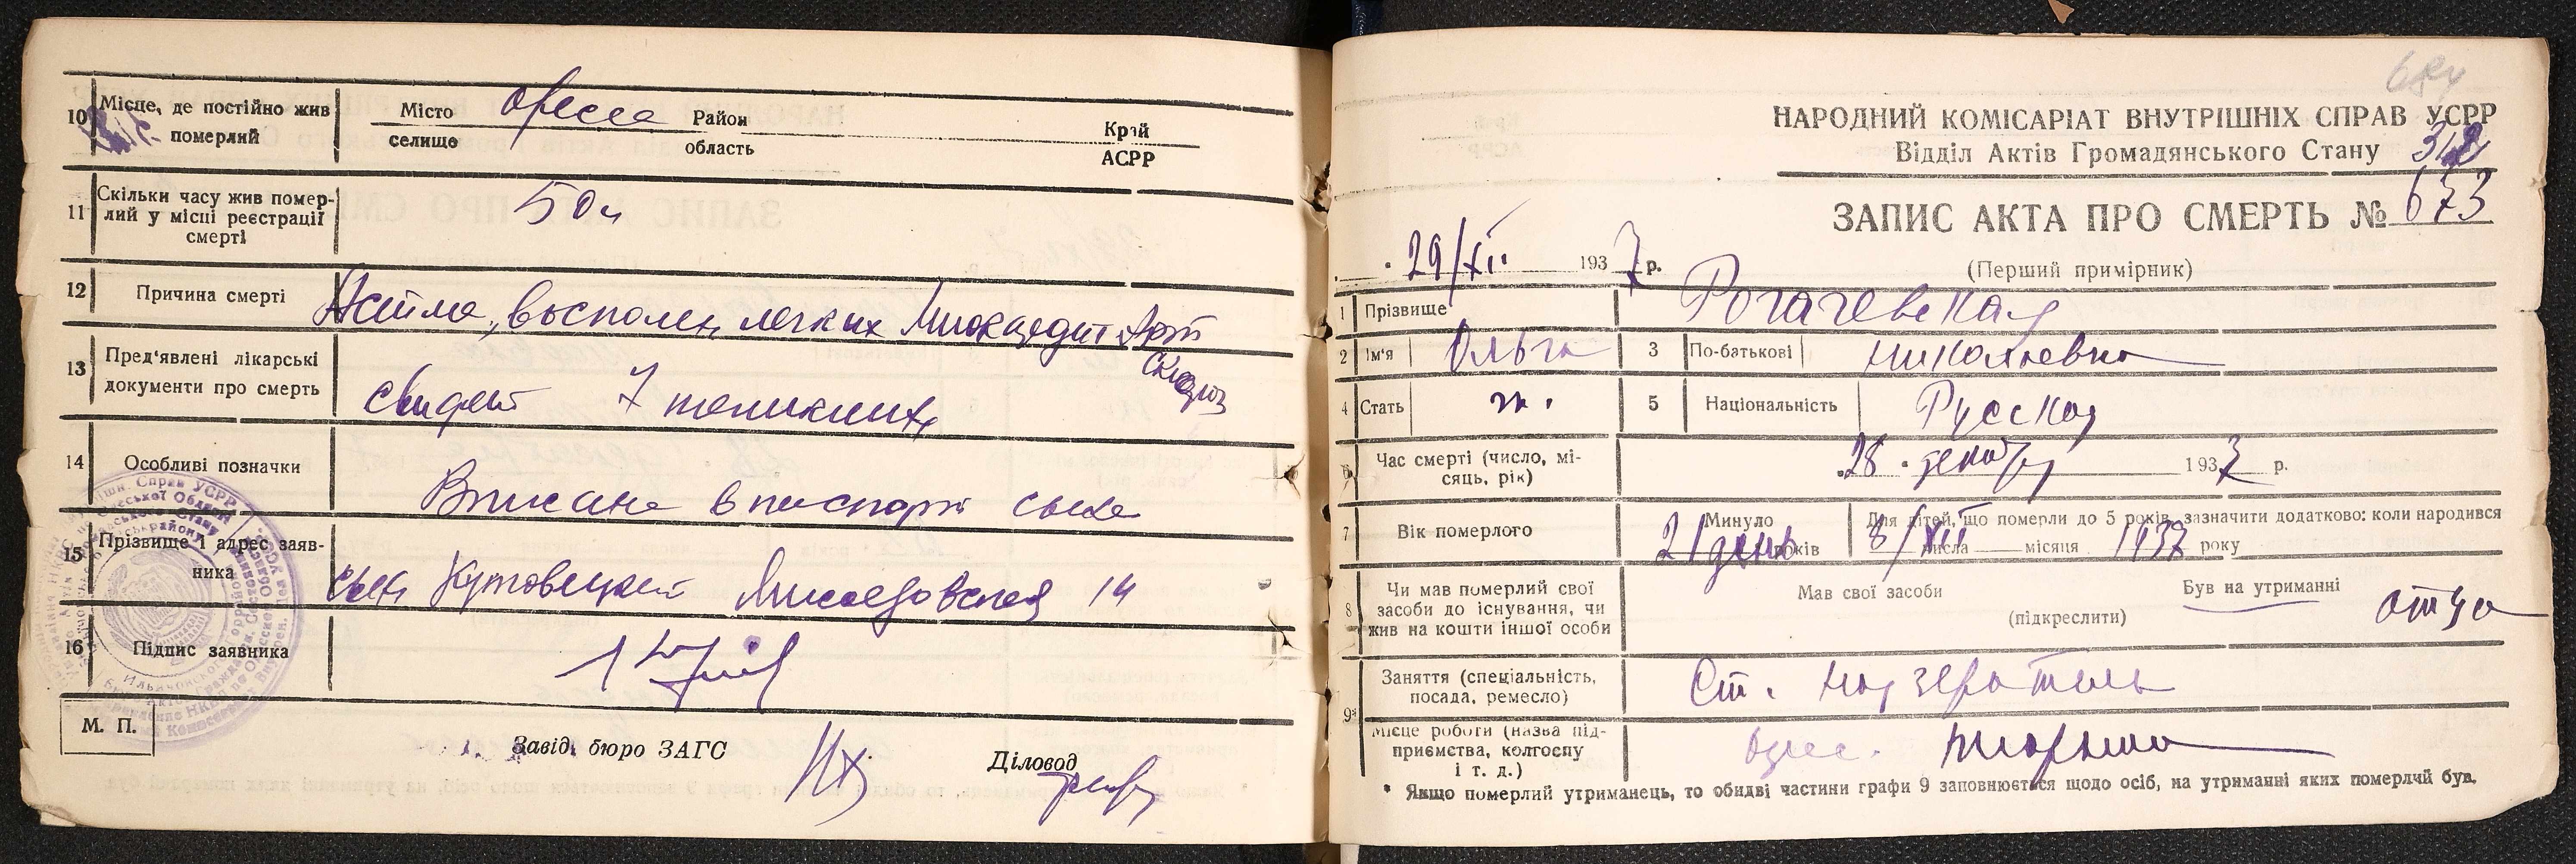 10 Місце, де постійно жив померлий
Місто селище Одесса Район область Край АСРР
11 Скільки часу жив помер-
лий у місці реєстрації
смерті
50
12 Причина смерті
Астма, воспален легких Миокардит Арт
склероз
13 Пред'явлені лікарські
документи про смерть
свидет 7 поликлин
14 Особливі позначки
в паспорт сына
15 Прізвище і адрес заяв-
ника
сын Кутовецкий 14
16 Підпис заявника
М. П.
Завід. бюро ЗАГС
Діловод
684
НАРОДНИЙ КОМІСАРІАТ ВНУТРІШНІХ СПРАВ УСРР
Відділ Актів Громадянського Стану
ЗАПИС АКТА ПРО СМЕРТЬ № 673
29/XII 1937 р.
(Перший примірник)
1 Прізвище Рогачевская
2 Ім'я Ольга 3 По-батькові Николаевна
4 Стать ж. 5 Національність Русская
6 Час смерті (число, мі-
сяць, рік)
28 декабр 1937 р.
7 Вік померлого
Минуло 21 день років
Для дітей, що померли до 5 років, зазначити додатково: коли народився
8/XII числа місяця 1937 року
8 Чи мав померлий свої
засоби до існування, чи
жив на кошти іншої особи
Мав свої засоби Був на утриманні
(підкреслити)
отца
9* Заняття (спеціальність,
посада, ремесло)
Ст. надзератель
Місце роботи (назва під-
приємства, колгоспу
і т. д.)
Одес. тюрьма
* Якщо померлий утриманець, то обидві частини графи 9 заповнюється щодо осіб, на утриманні яких померлий був.